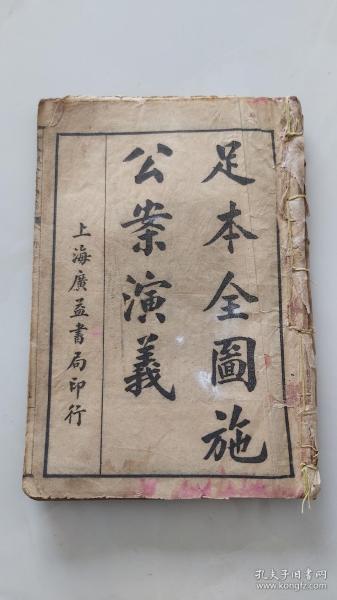 足本全圖施
公案演義
上海廣益書局印行
孔夫子旧书网
www.kongfz.com